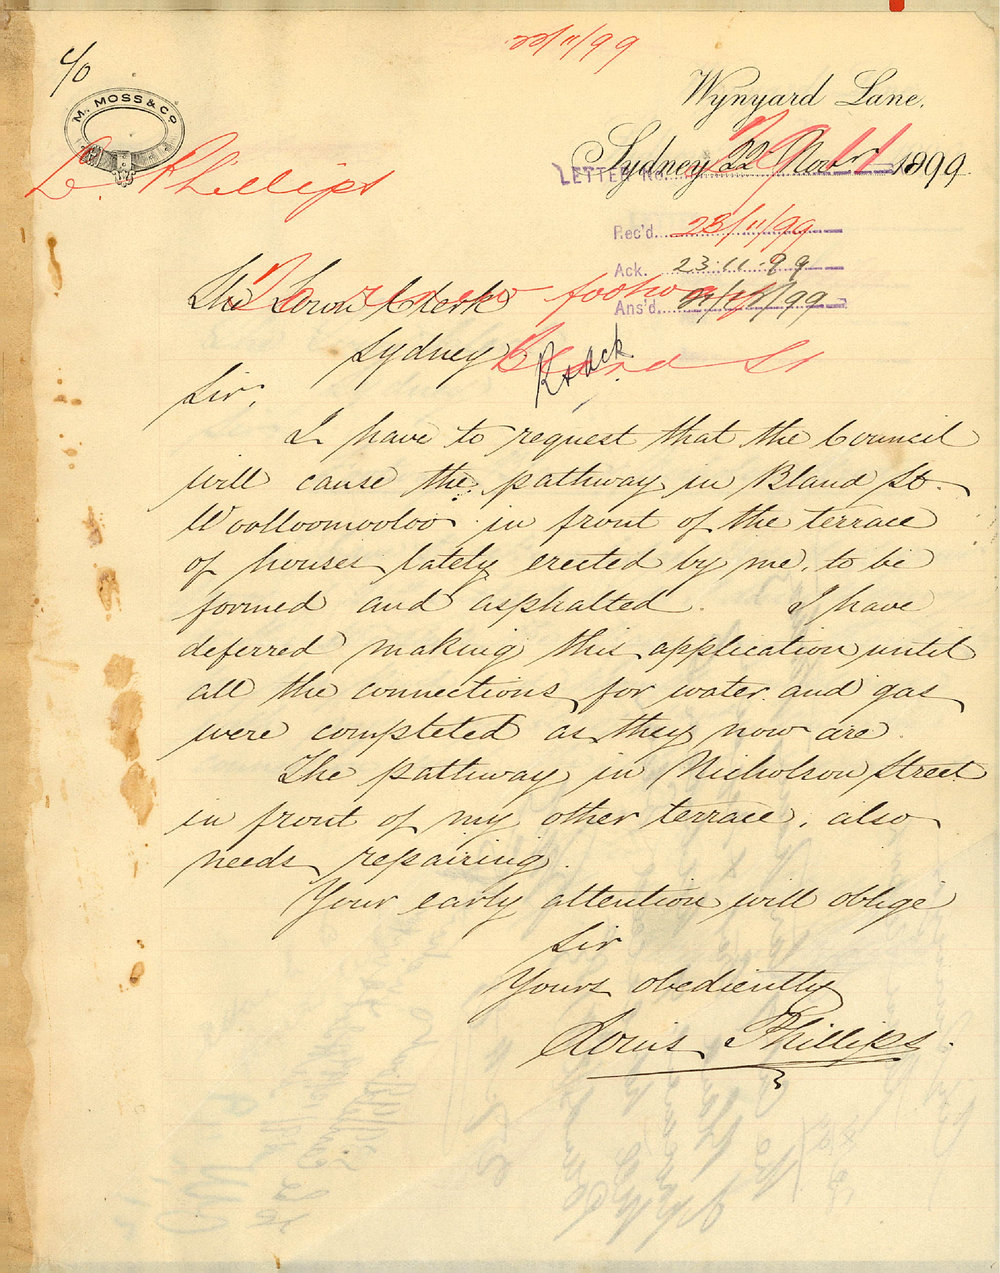 22/11/99
c/o
M. MOSS & CO
Wynyard Lane.
L. Phillips
Sydney 22 Novr 1899
LETTER No.
Rec'd. 23/11/99
Ack. 23.11.99
Ans'd. /99
The Town Clerk
footway
Sydney
Bland St
Sir,
I have to request that the Council
will cause the pathway in Bland St.
Woolloomooloo in front of the terrace
of houses lately erected by me, to be
formed and asphalted. I have
deferred making this application until
all the connections for water and gas
were completed as they now are.
The pathway in Nicholson Street
in front of my other terrace, also
needs repairing.
Your early attention will oblige
Sir
Yours obediently
Louis Phillips.